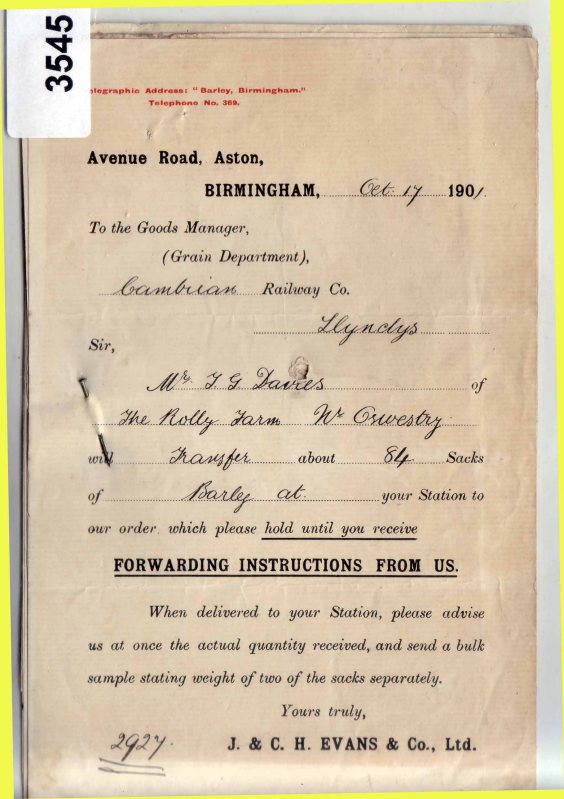 3545
elegraphic Address: "Barley, Birmingham."
Telephone No. 369.
Avenue Road, Aston,
BIRMINGHAM, Oct. 17 1901.
To the Goods Manager,
(Grain Department),
Cambrian Railway Co.
Llynclys
Sir,
Mr. T G Davies of
The Rolly Farm Nr Oswestry
will Transfer about 84 Sacks
of Barley at your Station to
our order, which please hold until you receive
FORWARDING INSTRUCTIONS FROM US.
When delivered to your Station, please advise
us at once the actual quantity received, and send a bulk
sample stating weight of two of the sacks separately.
Yours truly,
2927. J. & C. H. EVANS & Co., Ltd.